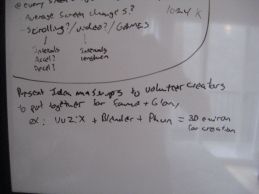 @ every
Average screen change s?
1024 K
- scrolling? / video? / GAMES
Intervals
Accel?
Decel?
Intervals
Present Idea mashups to volunteer creators
to put together for Fame + Glory
ex: Vuzix + Blender + Phun = 3D environ
for creation